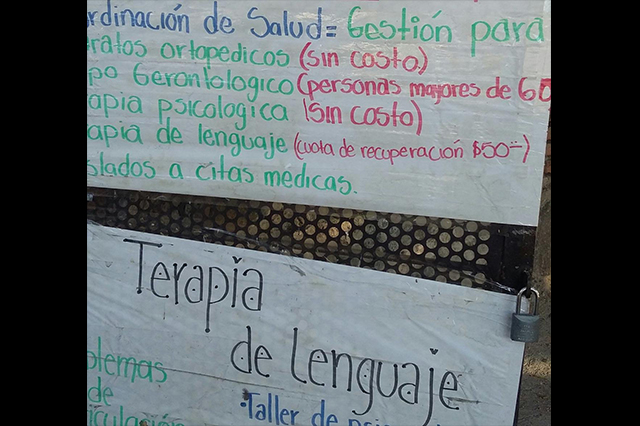 rdinación de Salud= Gestión para
ratos ortopedicos (sin costo)
po Gerontologico (personas mayores de 60
apia psicologica (sin costo)
apia de lenguaje (cuota de recuperación $50=)
slados a citas medicas.
Terapia
de Lenguaje
blemas
de
iculación
·Taller de